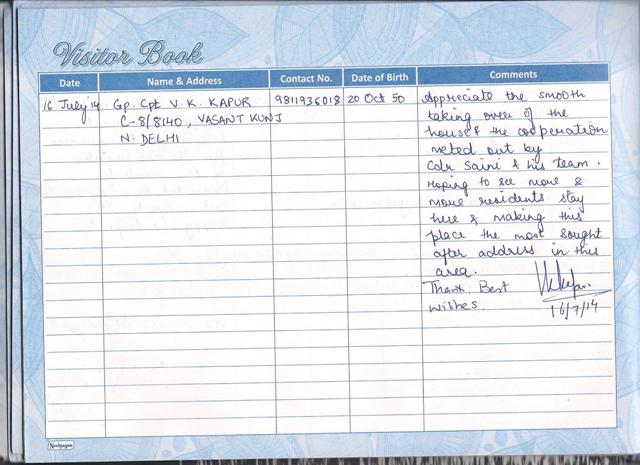 Visitor Book
Date Name & Address Contact No. Date of Birth Comments
16 July '14 Gp. Cpt V. K. KAPUR 9811936018 20 Oct 50 Appreciate the smooth
C-8/8140, VASANT KUNJ taking over of the
N. DELHI house & the cooperation
meted out by
Cdr Saini & his team.
Hoping to see more &
more residents stay
here & making this
place the most sought
after address in this
area.
Thank. Best
wishes.
16/7/14
Neelgagan